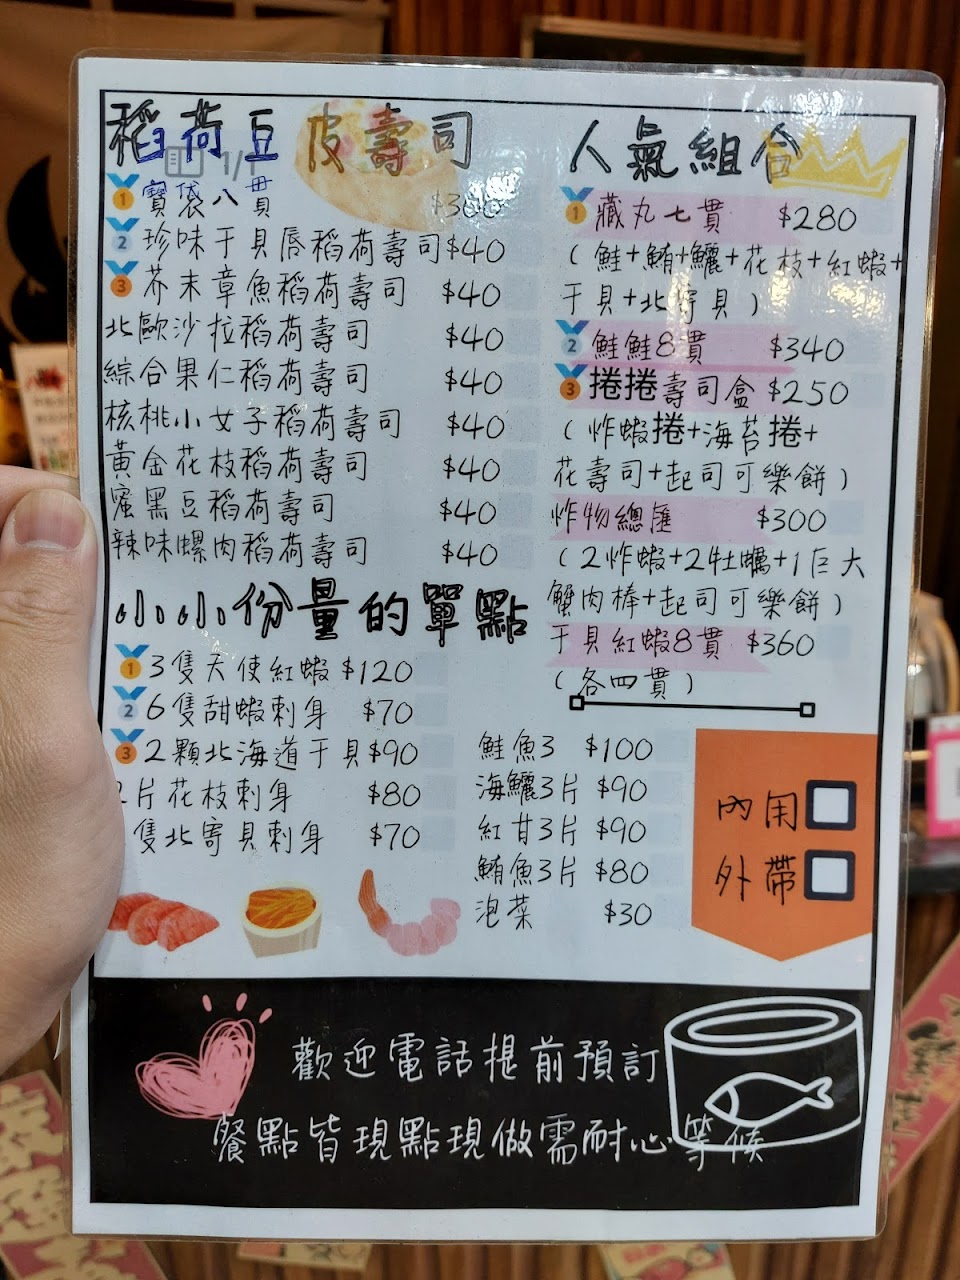 稻荷豆皮壽司
1/
1 寶袋八貫 $300
2 珍味干貝唇稻荷壽司$40
3 芥末章魚稻荷壽司 $40
北歐沙拉稻荷壽司 $40
綜合果仁稻荷壽司 $40
核桃小女子稻荷壽司 $40
黃金花枝稻荷壽司 $40
蜜黑豆稻荷壽司 $40
辣味螺肉稻荷壽司 $40
小小份量的單點
1 3隻天使紅蝦 $120
2 6隻甜蝦刺身 $70
3 2顆北海道干貝$90
2片花枝刺身 $80
隻北寄貝刺身 $70
人氣組合
1 藏丸七貫 $280
(鮭+鮪+鱺+花枝+紅蝦+
干貝+北寄貝)
2 鮭鮭8貫 $340
3 捲捲壽司盒 $250
(炸蝦捲+海苔捲+
花壽司+起司可樂餅)
炸物總匯 $300
(2炸蝦+2牡蠣+1巨大
蟹肉棒+起司可樂餅)
干貝紅蝦8貫 $360
(各四貫)
鮭魚3 $100
海鱺3片 $90
紅甘3片 $90
鮪魚3片 $80
泡菜 $30
內用
外帶
歡迎電話提前預訂
餐點皆現點現做需耐心等候